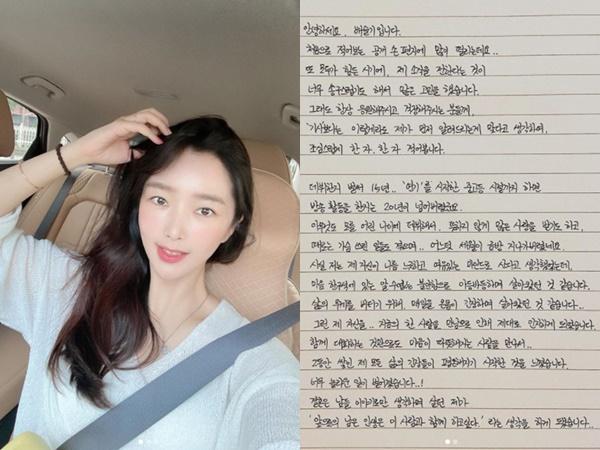 안녕하세요, 배슬기입니다.
처음으로 적어보는 공개 손편지에 많이 떨리는데요..
또 모두가 힘든 시기에, 제 소식을 전한다는 것이
너무 송구스럽기도 해서 많은 고민을 했습니다.
그래도 항상 응원해주시고 걱정해주시는 분들께,
'기사보다는 이렇게라도 제가 먼저 알려드리는게 맞다고 생각하여,
조심스럽게 한 자, 한 자 적어봅니다.
데뷔한지 벌써 15년.. '연기'를 시작한 중고등 시절까지 하면
방송 활동을 한지는 20년이 넘어버렸고요.
아무것도 모를 어린 나이에 데뷔해서, 뜻하지 않게 많은 사랑을 받기도 하고,
때로는 가슴 쓰린 일들도 겪으며.. 어느덧 세월이 금방 지나가버렸네요.
사실 저는 제 자신이 나름 느긋하고 여유있는 마인드로 산다고 생각했었는데,
마음 한구석에 있는 알 수 없는 불안감으로 아등바등하며 살아왔던 것 같습니다.
삶의 무게를 버티기 위해, 매일을 온몸이 긴장하며 살아왔던 것 같습니다..
그런 제 자신을.. 지금의 한 사람을 만남으로 인해 제대로 인지하게 되었습니다.
함께 대화하는 것만으로도 마음이 따뜻해지는 사람을 만나서..
그동안 쌓인 제 모든 삶의 긴장들이 평온해지기 시작한 것을 느꼈습니다.
너무 놀라운 일이 벌어졌습니다..!
결혼은 남들 이야기로만 생각하며 살던 제가
'앞으로의 남은 인생은 이 사람과 함께 하고싶다.' 라는 생각을 하게 되었습니다.